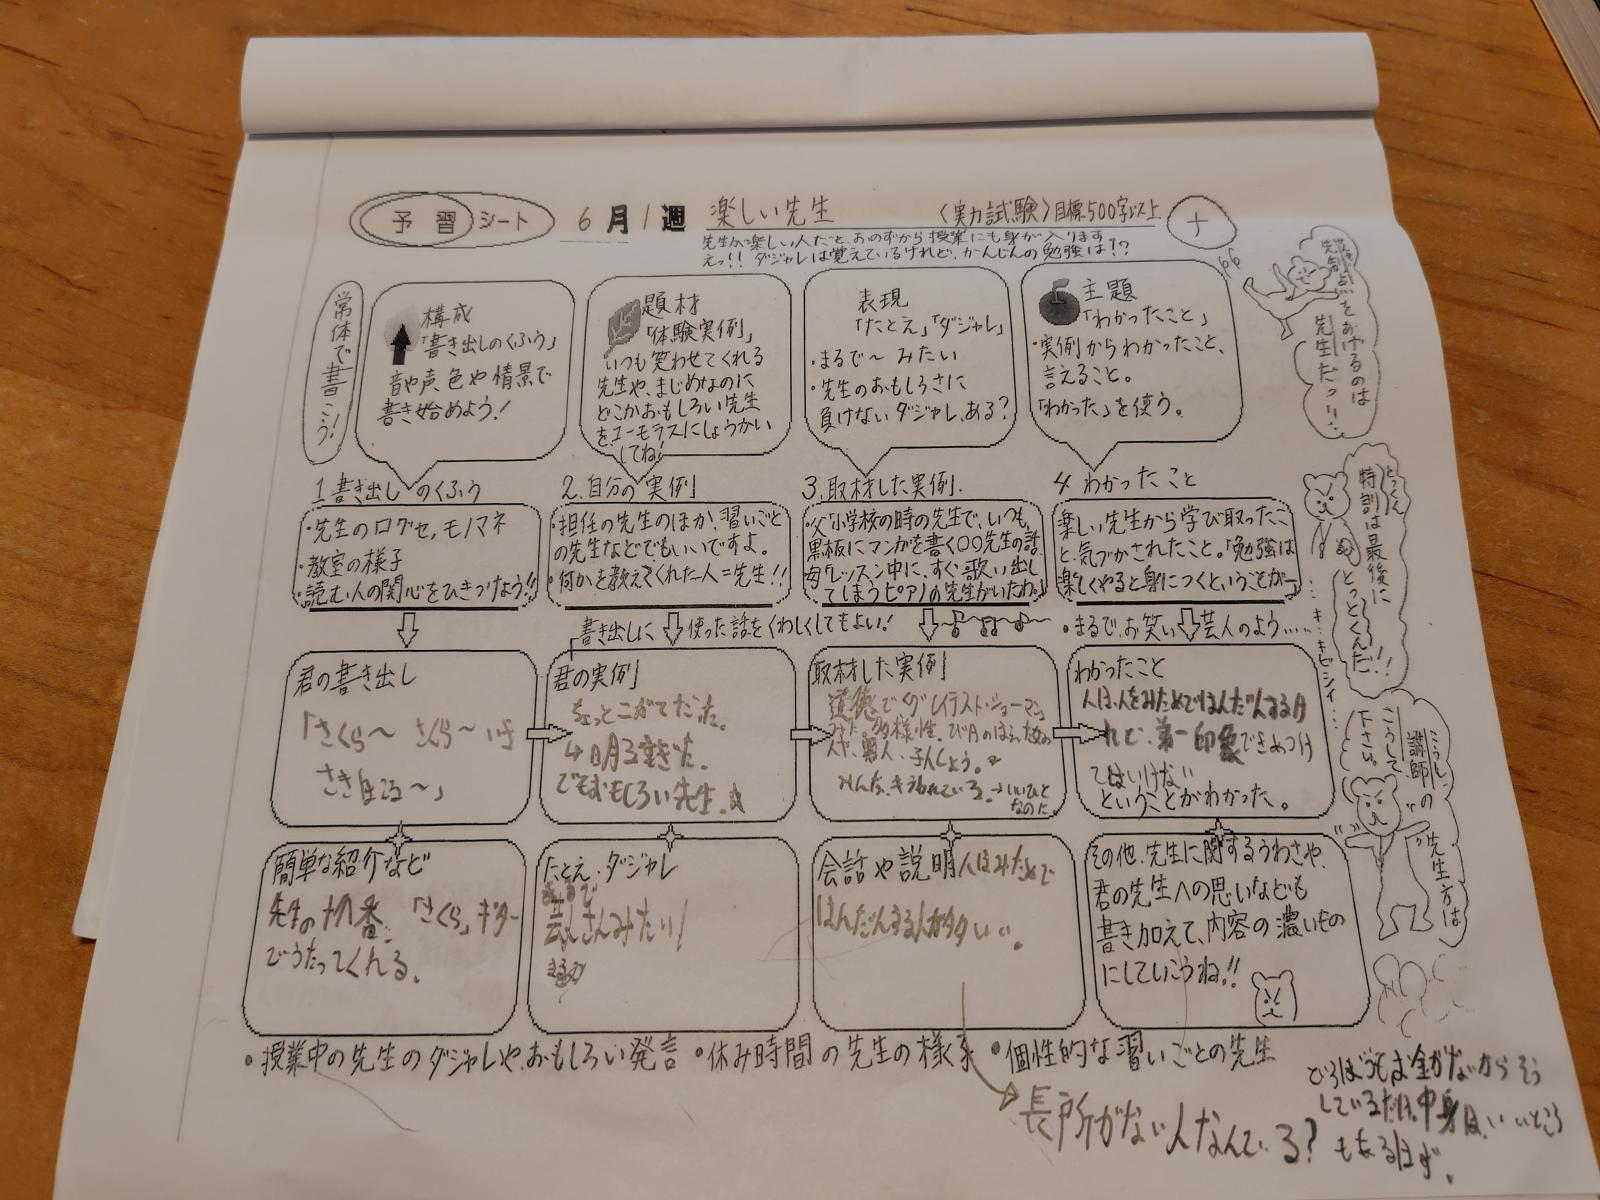 予習シート 6月1週 楽しい先生 〈実力試験〉目標500字以上 ナ
先生が楽しい人だと、おのずから授業にも身が入ります
えっ!! ダジャレは覚えているけれど、かんじんの勉強は??
常体で書こう!
構成
「書き出しのくふう」
音や声、色や情景で
書き始めよう!
題材
「体験実例」
いつも笑わせてくれる
先生や、まじめなのに
どこかおもしろい先生
をユーモラスにしょうかい
してね!
表現
「たとえ」「ダジャレ」
・まるで〜みたい
・先生のおもしろさに
負けないダジャレ、ある?
主題
「わかったこと」
・実例からわかったこと、
言えること。
「わかった」を使う。
1 書き出しのくふう
・先生の口グセ,モノマネ
・教室の様子
・読む人の関心をひきつけよう!!
2.自分の実例
・担任の先生のほか、習いごと
の先生などでもいいですよ。
・何かを教えてくれた人=先生!!
3.取材した実例.
・父「小学校の時の先生で、いつも、
黒板にマンガを書く〇〇先生の話
母「レッスン中に、すぐ歌い出し
てしまうピアノの先生がいたわ。」
4 わかったこと
楽しい先生から学び取ったこ
と、気づかされたこと。「勉強は
楽しくやると身につくということが―
書き出しに使った話をくわしくしてもよい!
・まるで、お笑い芸人のよう……
君の書き出し
「さくら〜 さくら〜 いま
さきほこる〜」
君の実例
ちょっとこがてだった。
でもおもしろい先生。
取材した実例
道徳で「グレイテスト・ショーマン」
みた。多様性。
みんな、きらわれている。→いいひと
なのに
わかったこと
人は、人をみためではんだんするけ
れど、第一印象できめつけ
てはいけない
ということがわかった。
簡単な紹介など
先生の十八番、「さくら」ギター
でうたってくれる。
たとえ・ダジャレ
まるで
芸人さんみたい!
会話や説明
人はみためで
はんだんする人が多い。
その他、先生に関するうわさや、
君の先生への思いなども
書き加えて、内容の濃いもの
にしていこうね!!
・授業中の先生のダジャレや、おもしろい発言 ・休み時間の先生の様子 ・個性的な習いごとの先生
長所がない人なんている?
どろぼうでもお金がないからそう
しているだけ。中身は、いいところ
もあるはず。
をあげるのは
先生だっ!!
とっくん
特訓は最後に
とっとくんだ!!
…キ・キビシイ…
こうし
講師の
先生方は
こうして
下さい。